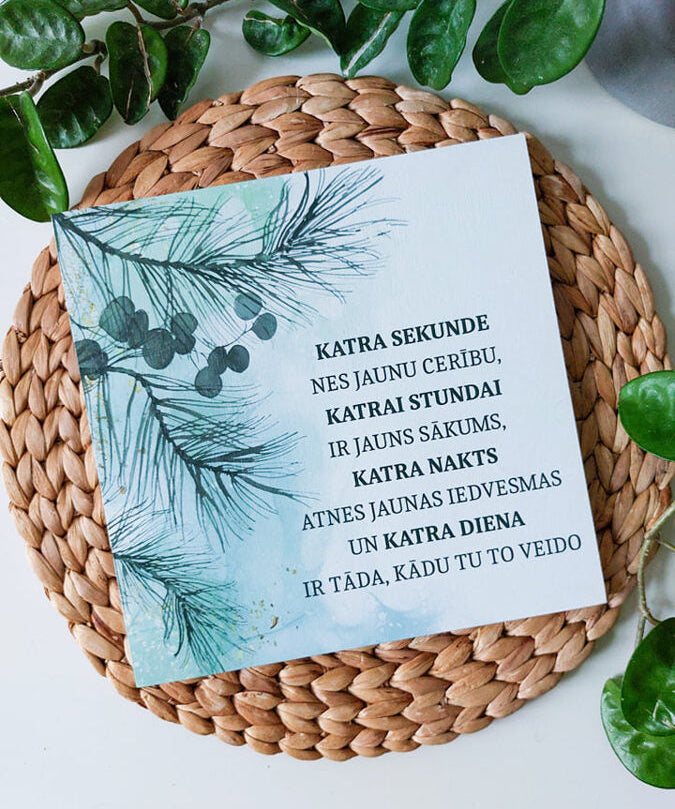 KATRA SEKUNDE
NES JAUNU CERĪBU,
KATRAI STUNDAI
IR JAUNS SĀKUMS,
KATRA NAKTS
ATNES JAUNAS IEDVESMAS
UN KATRA DIENA
IR TĀDA, KĀDU TU TO VEIDO